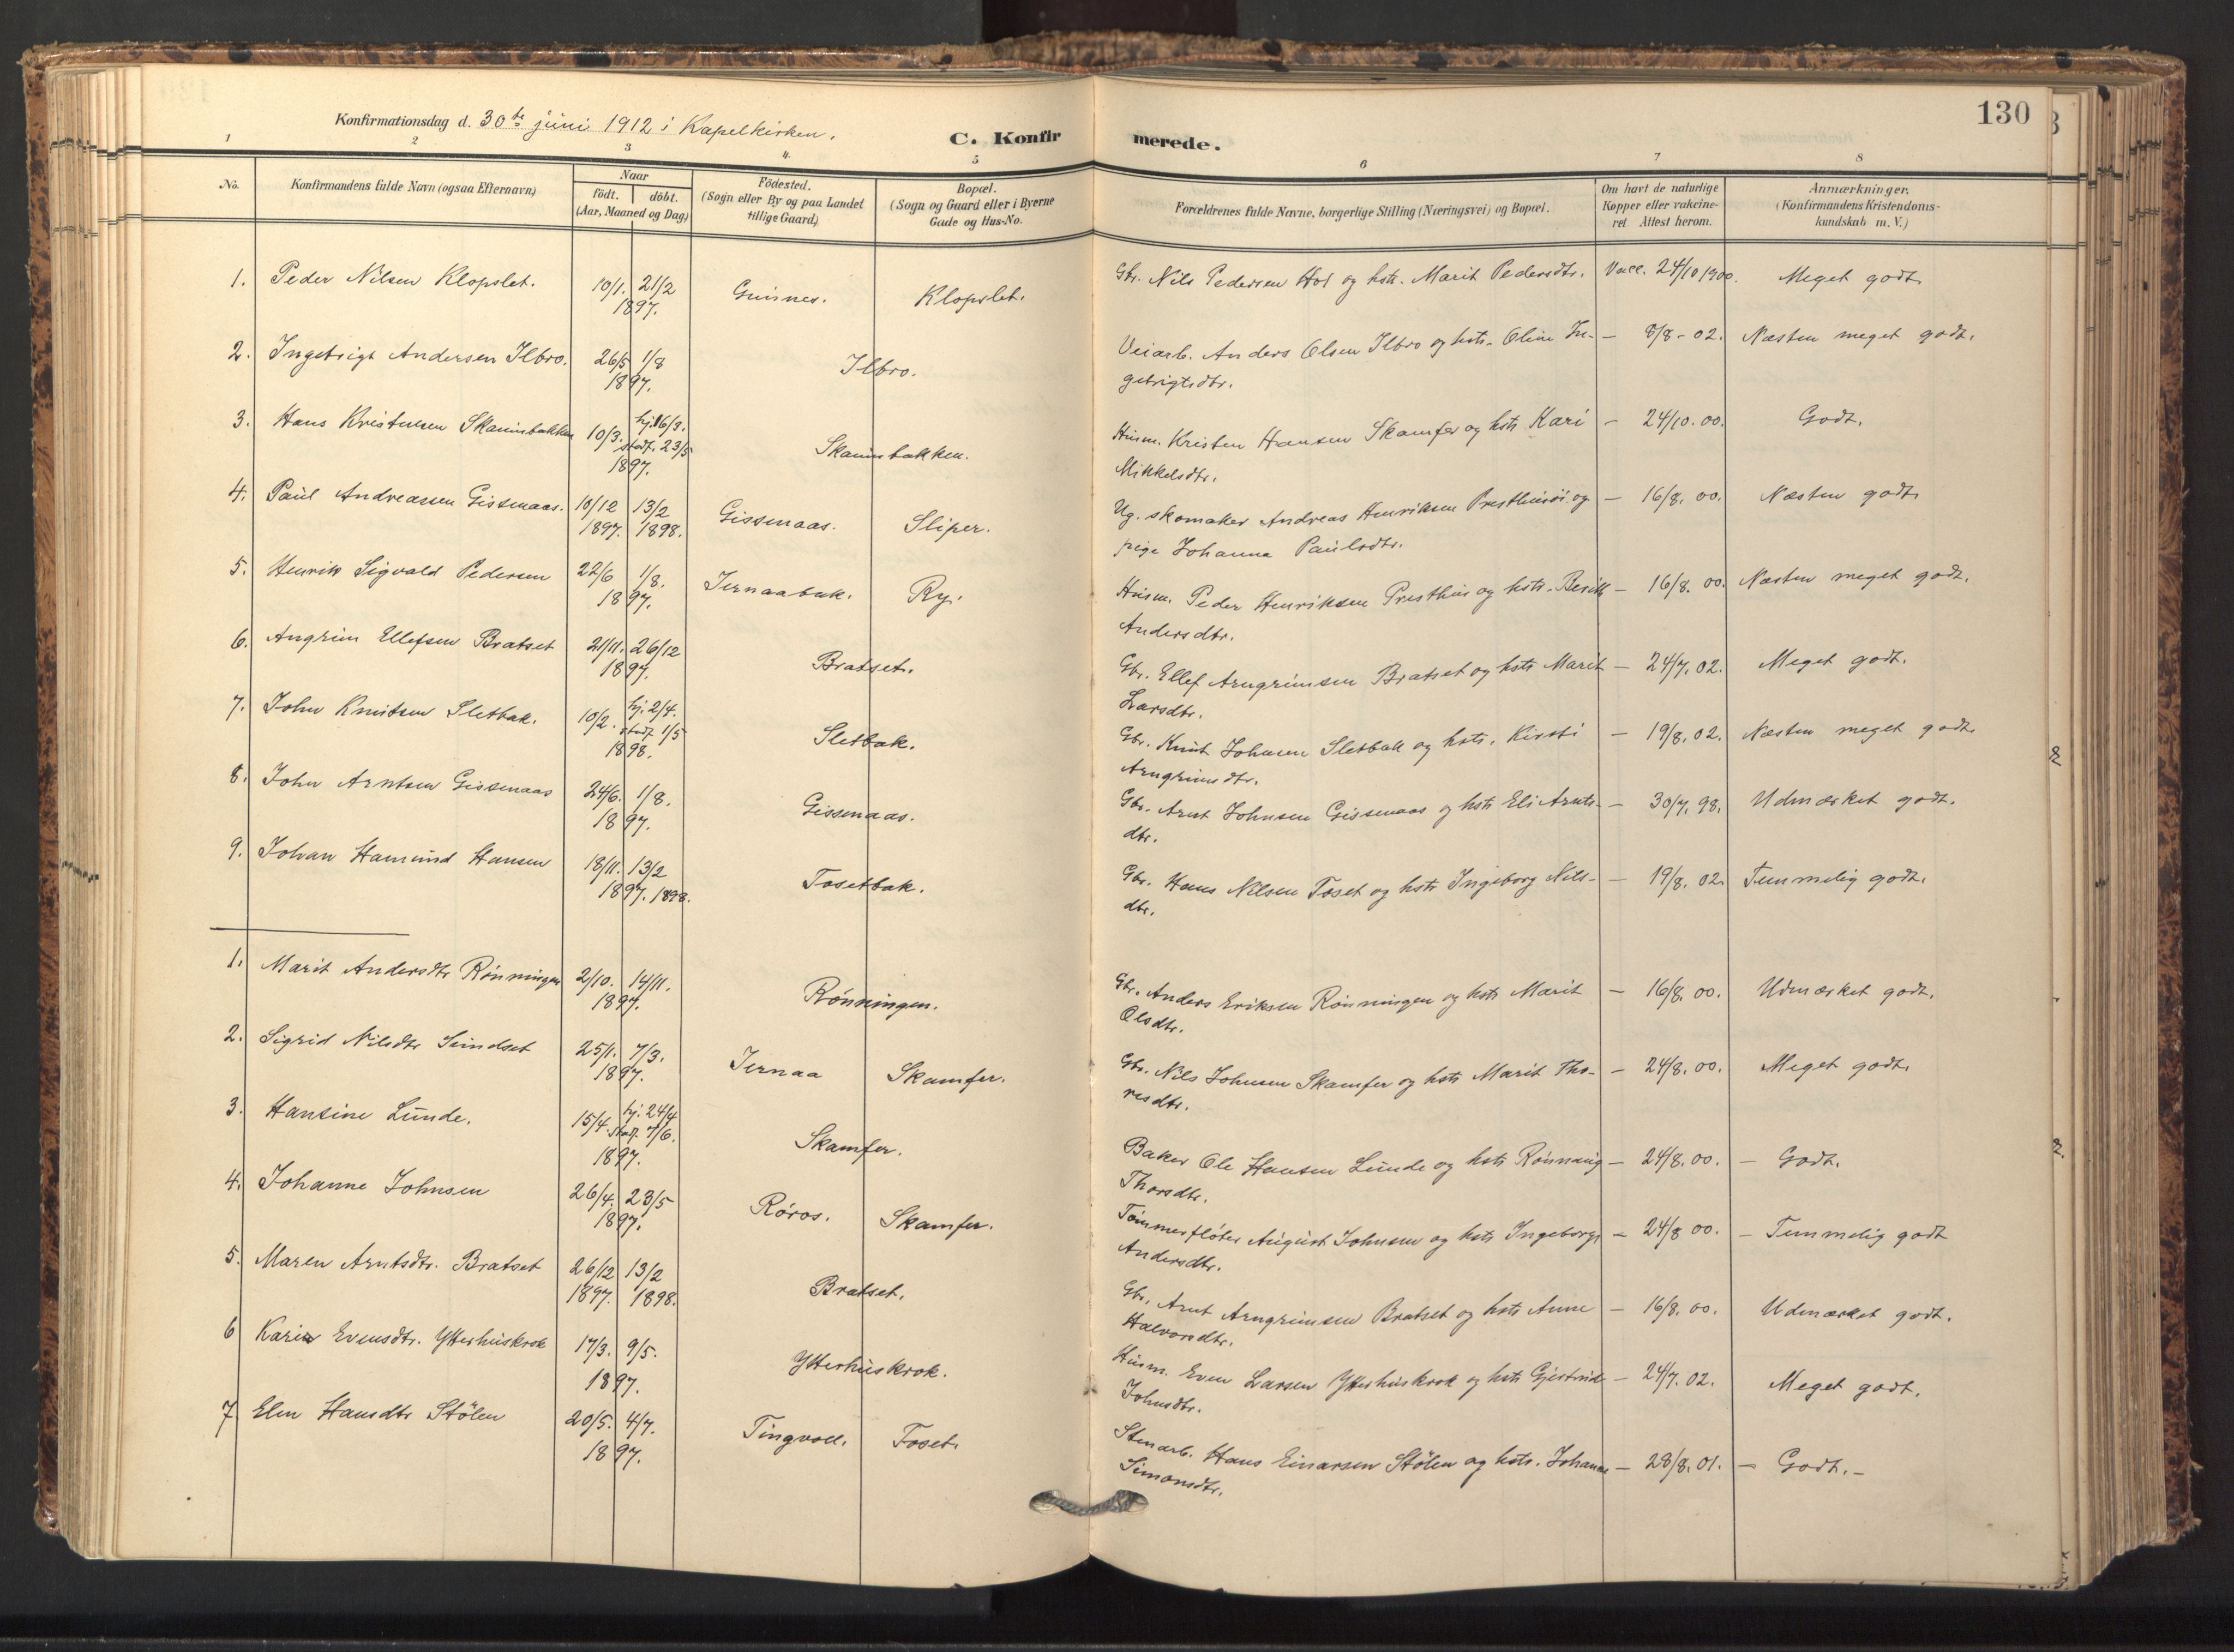 130
Konfirmationsdag d. 30te juni 1912 i Kapelkirken.
C. Konfirmerede.
1 2 3 4. 5 6 7 8
No. Konfirmandens fulde Navn (ogsaa Efternavn) Naar födt. döbt. (Aar, Maaned og Dag) Födested. (Sogn eller By og paa Landet tillige Gaard) Bopæl. (Sogn og Gaard eller i Byerne Gade og Hus-No. Forældrenes fulde Navne, borgerlige Stilling (Næringsvei) og Bopæl. Om havt de naturlige Kopper eller vakcineret Attest herom. Anmærkninger. (Konfirmandens Kristendomskundskab m. V.)
1. Peder Nilsen Klopslet. 10/1. 21/2 1897. Guines. Klopslet. Gbr. Nils Pedersen Hol og hstr. Marit Pedersdtr. Vacc. 24/10 1900. Meget godt.
2. Ingebrigt Andersen Ilbro. 26/5 1/8 1897. Ilbro. Veiarb. Anders Olsen Ilbro og hstr. Oline In- — 8/8 - 02. Næsten meget godt.
gebrigtsdtr.
3. Hans Kristensen Skamsbakken 10/3. hj. 16/3. stadf. 23/5 1897. Skamsbakken. Husm. Kristen Hansen Skamfer og hstr Kari — 24/10. 00. Godt.
Mikkelsdtr.
4. Paul Andreassen Gissenaas. 10/12 1897. 13/2 1898. Gissenaas. Sliper. Ug. skomaker Andreas Henriksen Presthusøi og — 16/8. 00. Næsten godt
pige Johanna Paulsdtr.
5. Henrik Sigvald Pedersen 22/6 1/8. 1897. Jernaabak. Ry. Husm. Peder Henriksen Presthus og hstr. Berith — 16/8. 00. Næsten meget godt.
Andersdtr.
6. Angrim Ellefsen Bratset 21/11. 26/12 1897. Bratset. Gbr. Ellef Arngrimsen Bratset og hstr Marit — 24/7. 02. Meget godt.
Larsdtr.
7. John Knutsen Sletbak. 10/2. hj. 2/4. stadf. 1/5 1898. Sletbak. Gbr. Knut Johnsen Sletbak og hstr. Kirsti — 19/8. 02. Næsten meget godt
Arngrimsdtr.
8. John Arntsen Gissenaas 24/6. 1/8. 1897. Gissenaas. Gbr. Arnt Johnsen Gissenaas og hstr Eli Arnts- — 30/7. 98. Udmærket godt.
dtr.
9. Johan Hamund Hansen 18/11. 1897. 13/2 1898. Tosetbak. Gbr. Hans Nilsen Toset og hstr Ingeborg Nils- — 19/8. 02. Temmelig godt.
dtr.
1. Marit Andersdtr Rönningen 2/10. 14/11. 1897. Rönningen. Gbr. Anders Eriksen Rönningen og hstr Marit — 16/8. 00. Udmærket godt.
Olsdtr.
2. Sigrid Nilsdtr Sundset 25/1. 7/3. 1897. Jernaa Skamfer. Gbr. Nils Johnsen Skamfer og hstr Marit Tho- — 24/8. 00. Meget godt.
resdtr.
3. Hansine Lunde. 15/4. hj. 24/4 stadf. 7/6. 1897. Skamfer. Baker Ole Hansen Lunde og hstr Rönnaug — 24/8. 00. — Godt.
Thorsdtr.
4. Johanne Johnsen 26/4. 23/5 1897. Röros. Skamfer. Tömmerfløter August Johnsen og hstr Ingeborg — 24/8 00. — Temmelig godt
Andersdtr.
5. Maren Arntsdtr. Bratset 26/12 1897. 13/2 1898. Bratset. Gbr. Arnt Arngrimsen Bratset og hstr Anne — 16/8. 00. Udmærket godt.
Halvorsdtr.
6 Kari Evensdtr. Ytterhuskrok 17/3. 9/5. 1897. Ytterhuskrok. Husm. Even Larsen Ytterhuskrok og hstr Gjertrud — 24/7. 02. Meget godt.
Johnsdtr.
7 Elen Hansdtr Stölen 20/5. 4/7. 1897. Tingvoll. Toset. Stenarb. Hans Einarsen Stölen og hstr. Johanne — 28/8. 01. — Godt. —
Simonsdtr.